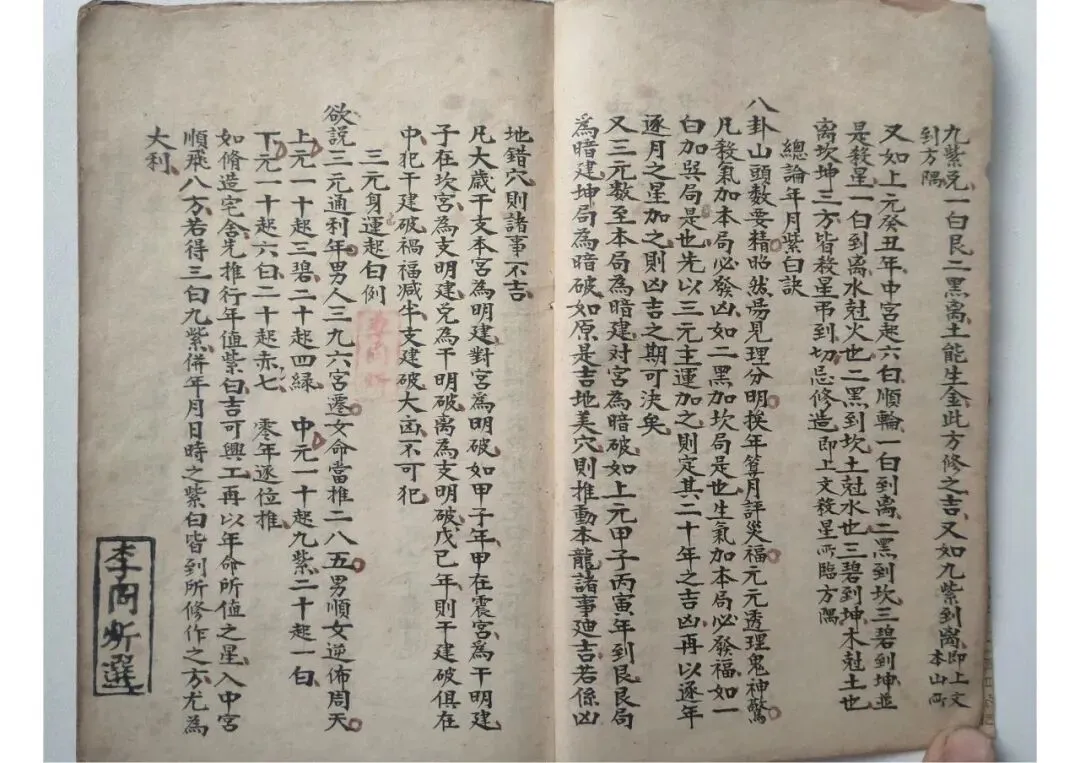 九紫兌一白艮二黑离土能生金此方修之吉又如九紫到离即上文本山所
到方隅
又如上元癸丑年中宮起六白順輪一白到离二黑到坎三碧到坤並
是殺星一白到离水尅火也二黑到坎土尅水也三碧到坤木尅土也
离坎坤三方皆殺星弔到切忌修造即上文殺星所臨方隅
總論年月紫白訣
八卦山頭數要精昭然易見理分明挨年算月評災福元元透理鬼神驚
凡殺氣加本局必發凶如二黑加坎局是也生氣加本局必發福如一
白加巽局是也先以三元主運加之則定其二十年之吉凶再以逐年
逐月之星加之則凶吉之期可決矣
又三元數至本局為暗建對宮為暗破如上元甲子丙寅年到艮艮局
為暗建坤局為暗破如原是吉地美穴則推動本龍諸事迪吉若係凶
地錯穴則諸事不吉
凡大歲干支本宮為明建對宮為明破如甲子年甲在震宮為干明建
子在坎宮為支明建兌為干明破离為支明破戊己年則干建破俱在
中犯干建破禍福減半支建破大凶不可犯
三元身運起白例
欲說三元通利年男人三九六宮遷女命當推二八五男順女逆佈周天
上元一十起三碧二十起四綠 中元一十起九紫二十起一白
下元一十起六白二十起赤七 零年逐位推
如脩造宅舍先推行年值紫白吉可興工再以年命所值之星入中宮
順飛八方若得三白九紫併年月日時之紫白皆到所修作之方尤為
大利